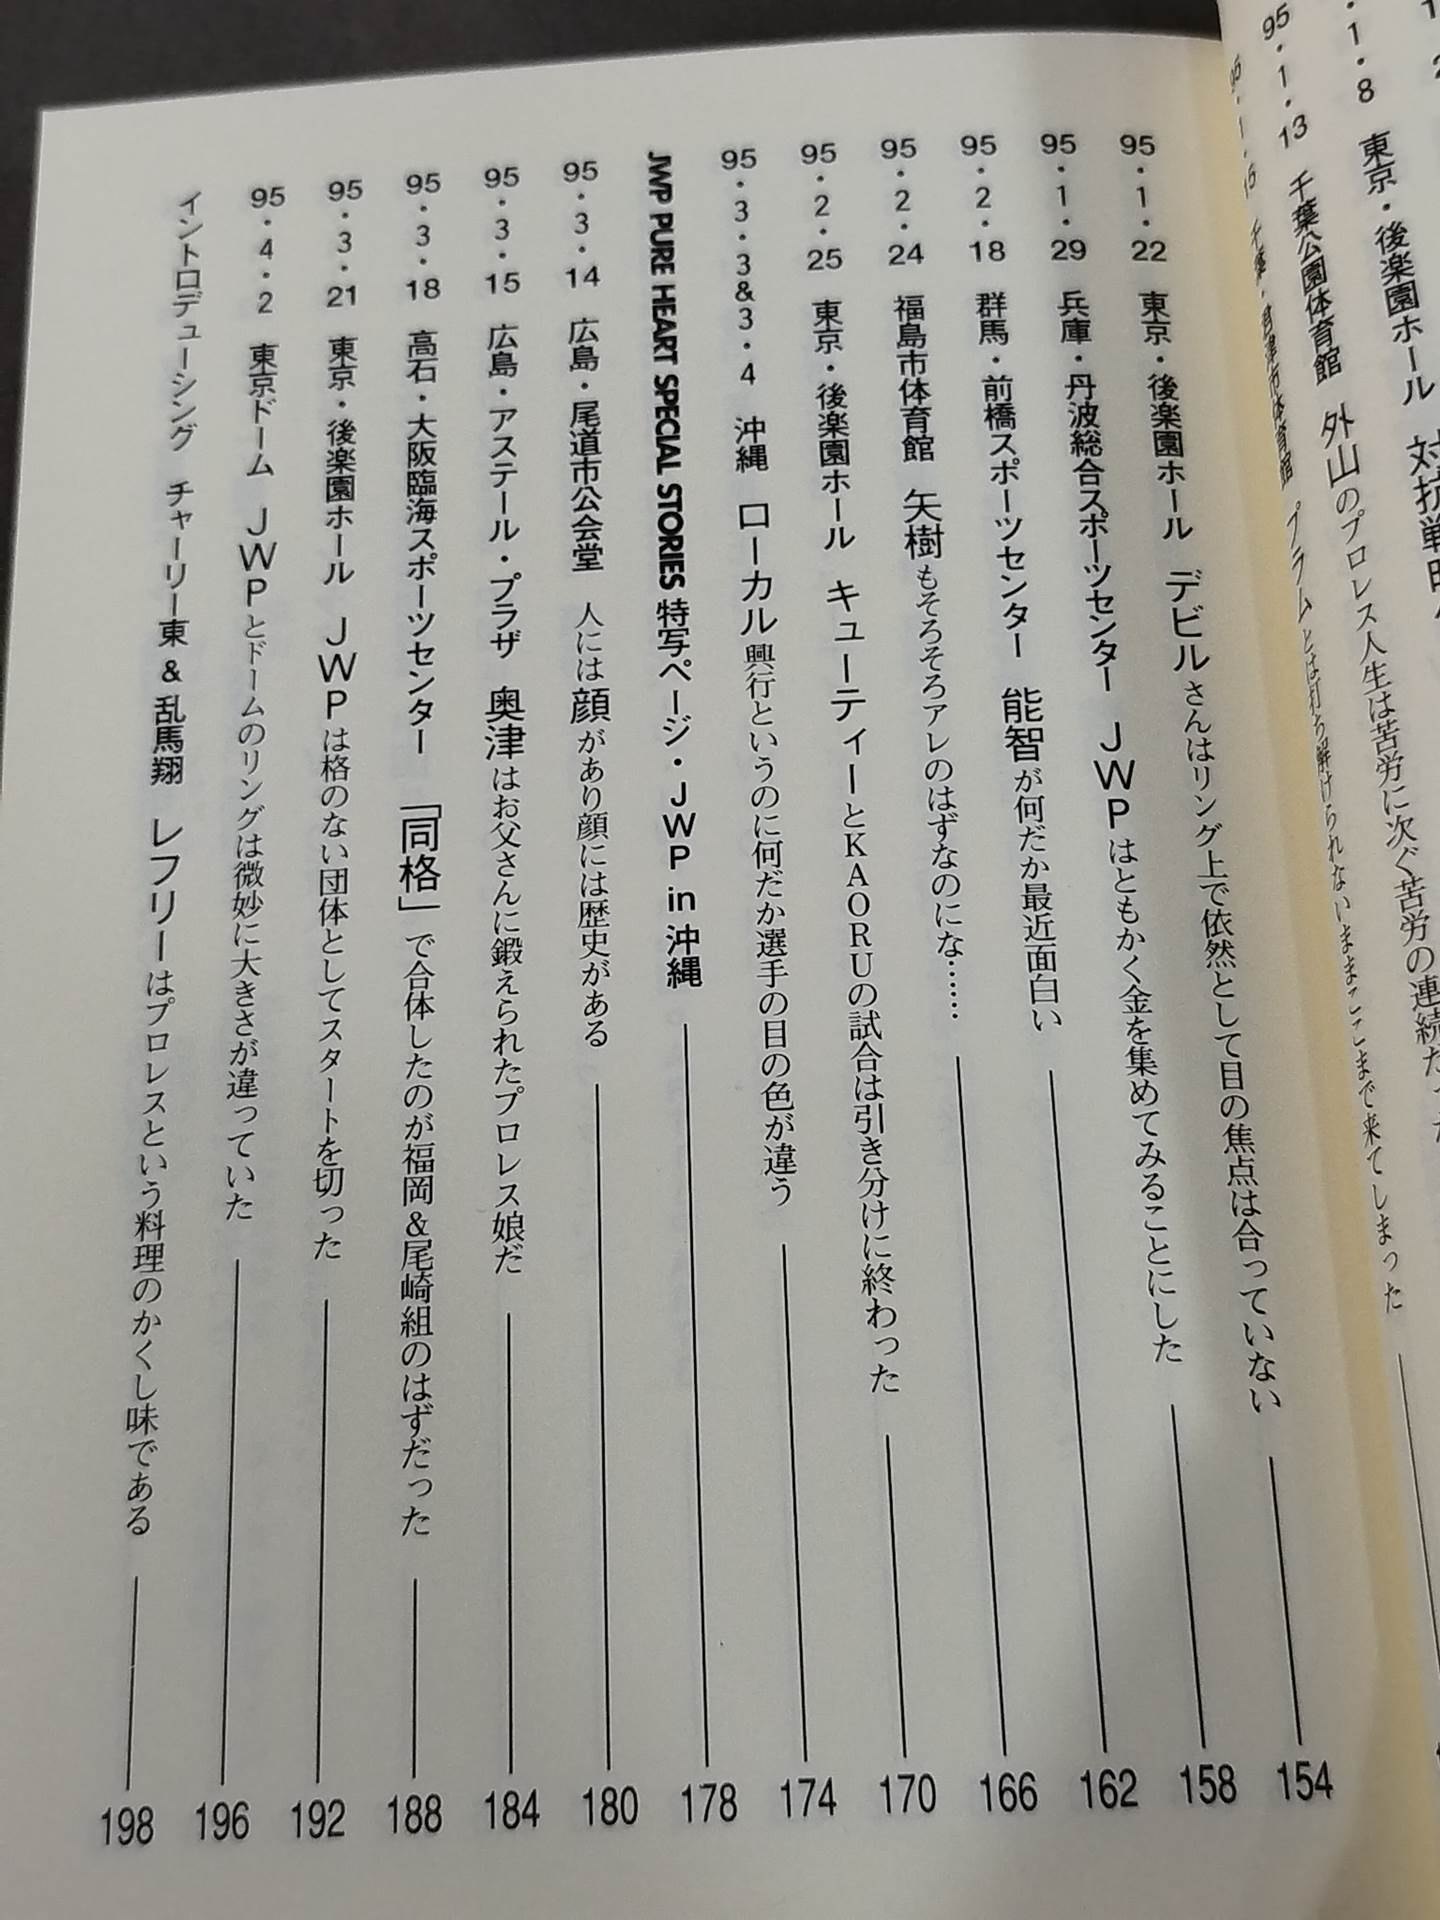 ・1・8 東京・後楽園ホール 対抗戦時
95・1・13 千葉公園体育館 外山のプロレス人生は苦労に次ぐ苦労の連続だった
95・1・15 千葉・君津市体育館 プラムとは打ち解けられないままここまで来てしまった
95・1・22 東京・後楽園ホール デビルさんはリング上で依然として目の焦点は合っていない 154
95・1・29 兵庫・丹波総合スポーツセンター JWPはともかく金を集めてみることにした 158
95・2・18 群馬・前橋スポーツセンター 能智が何だか最近面白い 162
95・2・24 福島市体育館 矢樹もそろそろアレのはずなのにな…… 166
95・2・25 東京・後楽園ホール キューティーとKAORUの試合は引き分けに終わった 170
95・3・3&3・4 沖縄 ローカル興行というのに何だか選手の目の色が違う 174
JWP PURE HEART SPECIAL STORIES 特写ページ・JWP in 沖縄 178
95・3・14 広島・尾道市公会堂 人には顔があり顔には歴史がある 180
95・3・15 広島・アステール・プラザ 奥津はお父さんに鍛えられたプロレス娘だ 184
95・3・18 高石・大阪臨海スポーツセンター 「同格」で合体したのが福岡&尾崎組のはずだった 188
95・3・21 東京・後楽園ホール JWPは格のない団体としてスタートを切った 192
95・4・2 東京ドーム JWPとドームのリングは微妙に大きさが違っていた 196
イントロデューシング チャーリー東&乱馬翔 レフリーはプロレスという料理のかくし味である 198